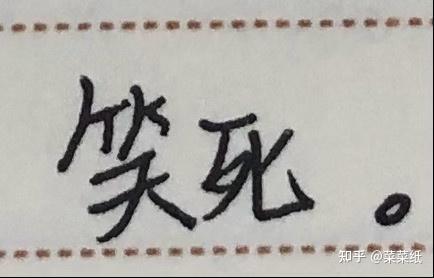 笑死。
知乎 @菜菜纸